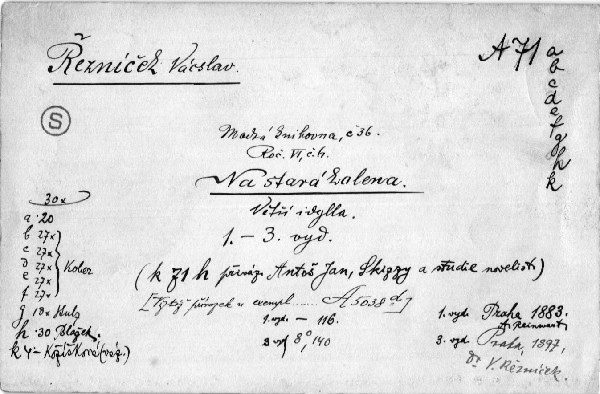 Řezníček Václav.
A 71 a
b
c
d
e
f
g
h
k
S
Modrá knihovna, č 36.
Roč. VI, č. 4.
Na stará kolena.
Větší idylla.
1. – 3. vyd.
(k 71 h přiváz. Antoš Jan, Skizzy a studie novelist.)
[Týž přívazek u exempl. A 5038 d]
1. vyd. – 116.
3 vyd 8°, 140
1. vyd. Praha 1883.
A. Reinwart
3. vyd. Praha, 1897,
Dr V. Řezníček.
30x
a 20
b 27x
c 27x
d 27x
e 27x
f 27x
Kober
g 18x
h 30
k 4 – Kožíšková (váz.)